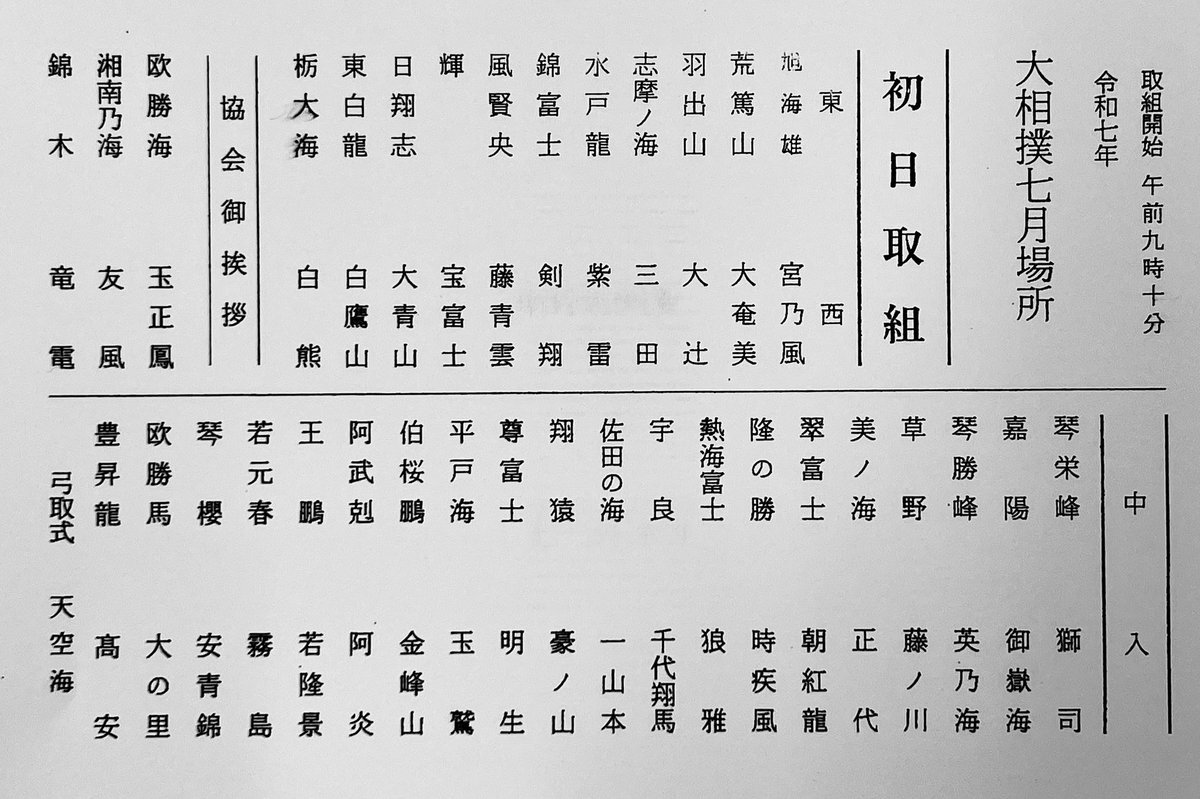 取組開始 午前九時十分
令和七年
大相撲七月場所
初日取組
東 西
旭海雄 宮乃風
荒篤山 大奄美
羽出山 大辻
志摩ノ海 三田
水戸龍 紫雷
錦富士 剣翔
風賢央 藤青雲
輝 宝富士
日翔志 大青山
東白龍 白鷹山
栃大海 白熊
協会御挨拶
欧勝海 玉正鳳
湘南乃海 友風
錦木 竜電
中入
琴栄峰 獅司
嘉陽 御嶽海
琴勝峰 英乃海
草野 藤ノ川
美ノ海 正代
翠富士 朝紅龍
隆の勝 時疾風
熱海富士 狼雅
宇良 千代翔馬
佐田の海 一山本
翔猿 豪ノ山
尊富士 明生
平戸海 玉鷲
伯桜鵬 金峰山
阿武剋 阿炎
王鵬 若隆景
若元春 霧島
琴櫻 安青錦
欧勝馬 大の里
豊昇龍 髙安
弓取式 天空海